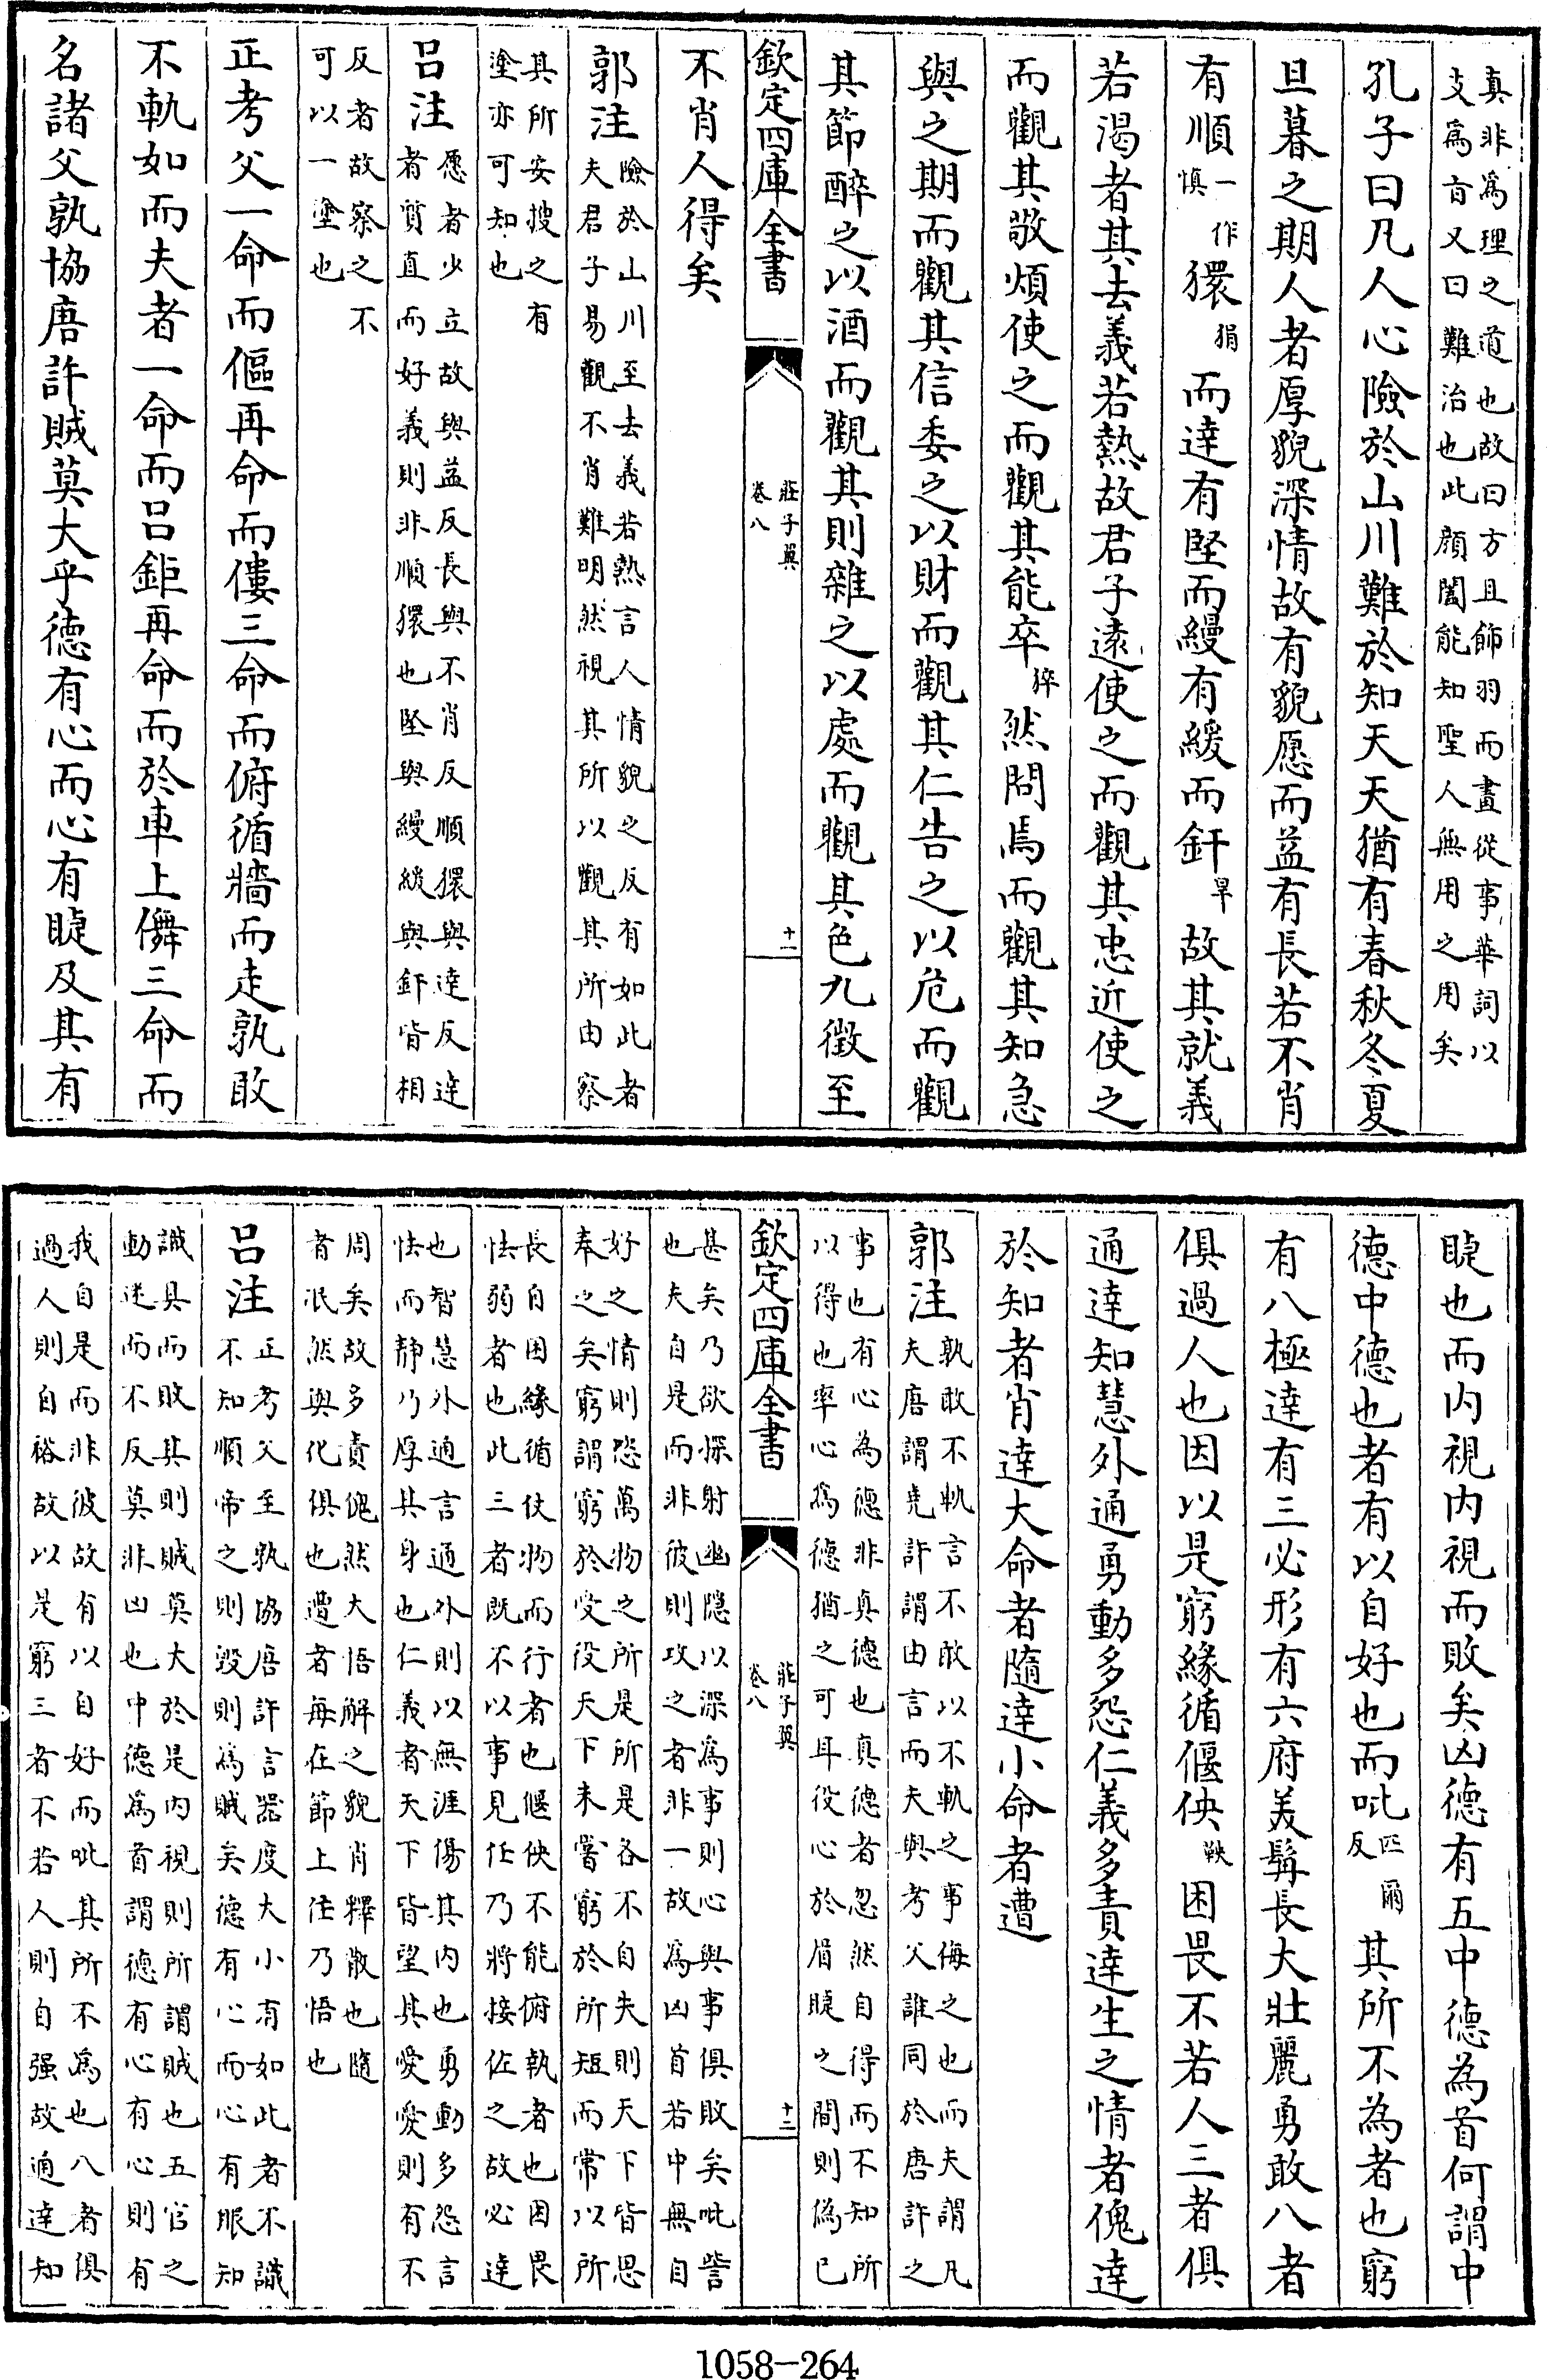 真非為理之道也故曰方且飾羽而畫從事華詞以
支為㫖又曰難治也此顔闔能知聖人無用之用矣
孔子曰凡人心險於山川難於知天天猶有春秋冬夏
旦暮之期人者厚貌深情故有貌愿而益有長若不肖
有順一作慎獧狷而達有堅而縵有緩而釬旱故其就義
若渴者其去義若熱故君子逺使之而觀其忠近使之
而觀其敬煩使之而觀其能卒猝然問焉而觀其知急
與之期而觀其信委之以財而觀其仁告之以危而觀
其節醉之以酒而觀其則雜之以處而觀其色九徵至
欽定四庫全書
莊子翼
卷八
十一
不肖人得矣
郭注
險於山川至去義若熱言人情貌之反有如此者
夫君子易觀不肖難明然視其所以觀其所由察
其所安搜之有
塗亦可知也
吕注
愿者少立故與益反長與不肖反順獧與達反達
者質直而好義則非順獧也堅與縵緩與釬皆相
反者故察之不
可以一塗也
正考父一命而傴再命而僂三命而俯循牆而走孰敢
不軌如而夫者一命而吕鉅再命而於車上儛三命而
名諸父孰協唐許賊莫大乎德有心而心有睫及其有
睫也而内視内視而敗矣凶德有五中德為首何謂中
德中德也者有以自好也而吡匹爾反其所不為者也窮
有八極達有三必形有六府美髯長大壯麗勇敢八者
俱過人也因以是窮緣循偃佒鞅困畏不若人三者俱
通達知慧外通勇動多怨仁義多責達生之情者傀達
於知者肖達大命者隨達小命者遭
郭注
孰敢不軌言不敢以不軌之事侮之也而夫謂凡
夫唐謂堯許謂由言而夫與考父誰同於唐許之
事也有心為德非真德也真德者忽然自得而不知所
以得也率心為德猶之可耳役心於眉睫之間則偽已
欽定四庫全書
莊子翼
卷八
十二
甚矣乃欲探射幽隱以深為事則心與事俱敗矣吡訾
也夫自是而非彼則攻之者非一故為凶首若中無自
好之情則恣萬物之所是所是各不自失則天下皆思
奉之矣窮謂窮於受役天下未嘗窮於所短而常以所
長自困緣循仗物而行者也偃佒不能俯執者也困畏
怯弱者也此三者既不以事見任乃將接佐之故必達
也智慧外通言通外則以無涯傷其内也勇動多怨言
怯而静乃厚其身也仁義者天下皆望其愛愛則有不
周矣故多責傀然大悟解之貌肖釋散也隨
者泯然與化俱也遭者每在節上住乃悟也
吕注
正考父至孰協唐許言器度大小有如此者不識
不知順帝之則毀則為賊矣德有心而心有眼知
識具而敗其則賊莫大於是内視則所謂賊也五官之
動迷而不反莫非凶也中德為首謂德有心有心則有
我自是而非彼故有以自好而吡其所不為也八者俱
過人則自裕故以是窮三者不若人則自强故通達知
1058-264